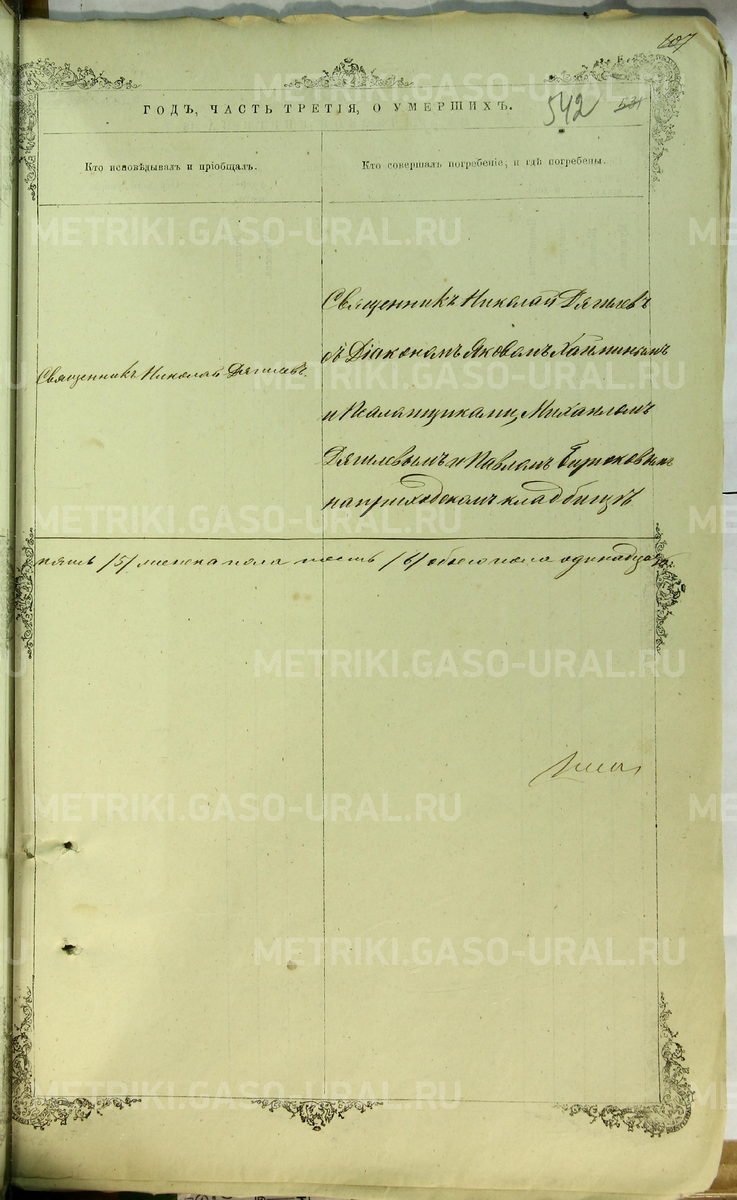 607
ГОДЪ, ЧАСТЬ ТРЕТІЯ, О УМЕРШИХЪ.
542
Кто исповѣдывалъ и пріобщалъ.
Кто совершалъ погребеніе, и гдѣ погребены.
Священникъ Николай Дягилевъ
Священникъ Николай Дягилевъ
съ Діаконамъ Яковомъ
и Псаломщиками, Михаиломъ
Дягилевымъ и Павломъ Бирюковымъ
на приходскомъ кладбищѣ
пять /5/ женска пола шесть /6/ обоего пола одинадцать
METRIKI.GASO-URAL.RU